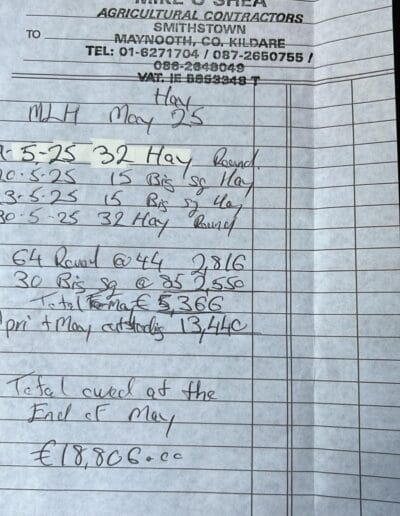 MIKE O'SHEA
AGRICULTURAL CONTRACTORS
SMITHSTOWN
TO MAYNOOTH, CO. KILDARE
TEL: 01-6271704 / 087-2650755 /
086-2648049
VAT. IE 8853348 T
Hay
MLH May 25
5-25 32 Hay Round
0.5.25 15 Big sq Hay
3.5.25 15 Big sq Hay
30.5-25 32 Hay Round
64 Round @ 44 2,816
30 Big sq @ 85 2,550
Total € 5,366
pri + May 13,440
Total owed at the
End of May
€18,806.00